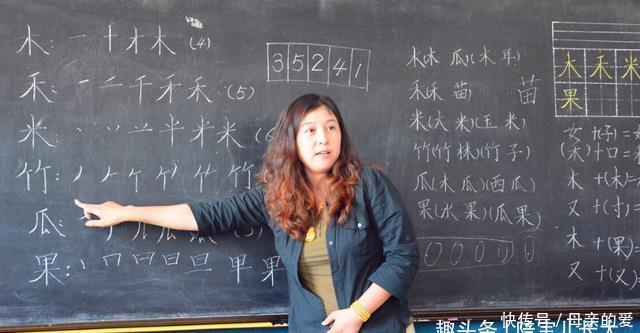 木: 一 十 才 木 (4)
禾: 一 二 千 禾 禾 (5)
米 丶 丷 䒑 半 米 米 (6
竹: 丿 𠂉 竹 竹
瓜:
果: 丨 冂 曰 日 旦 甲 果 果
3 5 2 4 1
木(木 瓜)(木 耳)
禾(禾 苗) 苗
米(大 米)(玉 米)
竹(竹 林)(竹 子)
瓜(木 瓜)(西 瓜)
果(水 果)(瓜 果)
木 禾 米
果
女 + (子) =
(禾) + 口 =
木 + (木) =
又 + (寸) =
木 + (果)
又 + (又)
快传号 / 母亲的爱